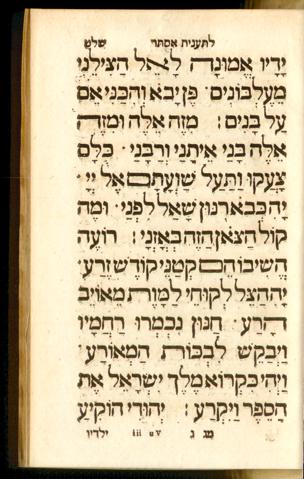 לתענית אסתר שלט
יָדָיו אֱמוּנָה לָאֵל הַצִּילֵנִי
מֵעֶלְבּוֹנִים׃ פֶּן יָבֹא וְהִכַּנִי אֵם
עַל בָּנִים׃ מִזֶּה אֵלֶּה וּמִזֶּה
אֵלֶּה בָּנַי אֵיתָנַי וְרַבָּנַי׃ כֻּלָּם
צָעֲקוּ וַתַּעַל שַׁוְעָתָם אֶל יְיָ׃
יָהּ כְּבֹא רִנּוּן שָׁאַל לְפָנַי׃ וּמֶה
קוֹל הַצֹּאן הַזֶּה בְּאָזְנָי׃ רוֹעֶה
הֱשִׁיבוֹ הֵם קְטַנֵּי קוֹדֶשׁ זֶרַע׃
יָהּ הַצֵּל לְקוּחֵי לַמָּוֶת מֵאוֹיֵב
הָרַע׃ חַנּוּן נִכְמְרוּ רַחֲמָיו
וַיְבַקֵּשׁ לִבְכּוֹת הַמְאוֹרָע׃
וַיְהִי כִּקְרוֹא מֶלֶךְ יִשְׂרָאֵל אֶת
הַסֵּפֶר וַיִּקְרַע׃ יְהוּדִי הוֹקִיעַ
מג ג uv iii יְלָדָיו